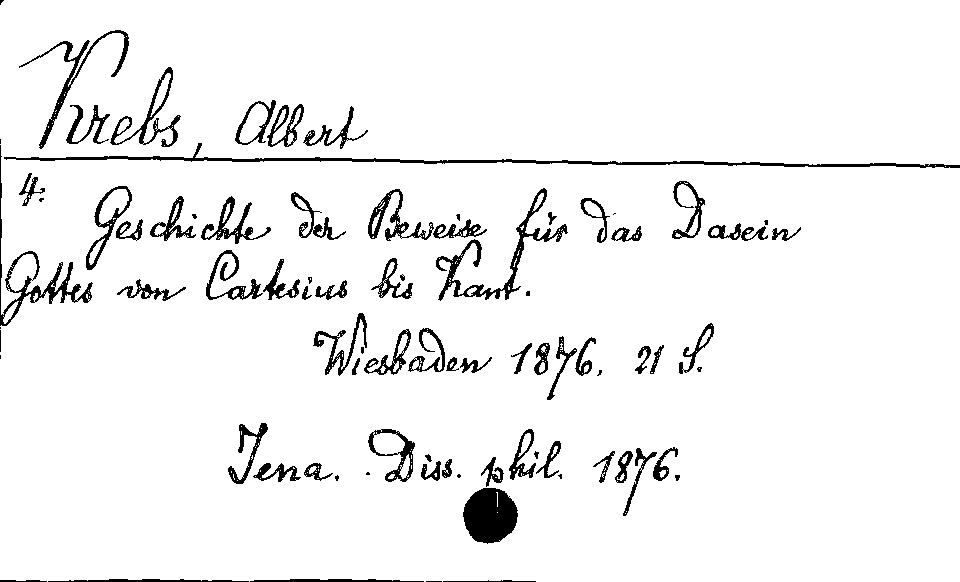 Krebs, Albert
4:
Geschichte der Beweise für das Dasein
Gottes von Cartesius bis Kant.
Wiesbaden 1876. 21 S.
Jena. Diss. phil. 1876.